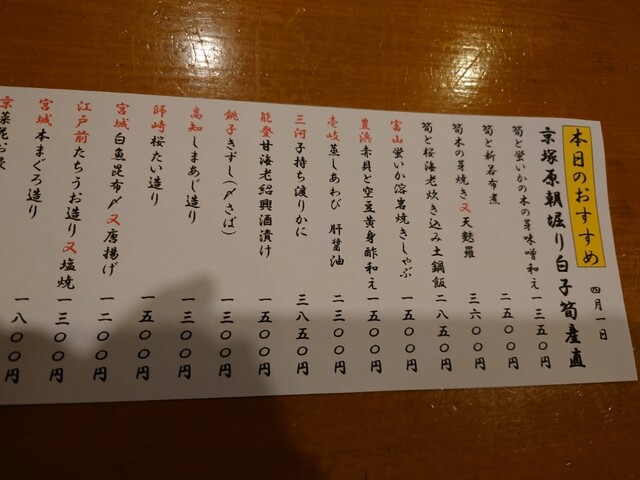 本日のおすすめ 四月一日
京塚原朝堀り白子筍産直
筍と蛍いかの木の芽味噌和え 一三五〇円
筍と新若布煮 二五〇〇円
筍木の芽焼き又天麩羅 三六〇〇円
筍と桜海老炊き込み土鍋飯 二八五〇円
富山蛍いか溶岩焼きしゃぶ 一五〇〇円
豊浜赤貝と空豆黄身酢和え 一五〇〇円
壱岐蒸しあわび 肝醤油 二三〇〇円
三河子持ち渡りかに 三八五〇円
能登甘海老紹興酒漬け 一五〇〇円
銚子きずし(〆さば) 一三〇〇円
高知しまあじ造り 一三〇〇円
師崎桜たい造り 一五〇〇円
宮城白魚昆布〆又唐揚げ 一二〇〇円
江戸前たちうお造り又塩焼 一三〇〇円
宮城本まぐろ造り 一八〇〇円
京菜花お浸